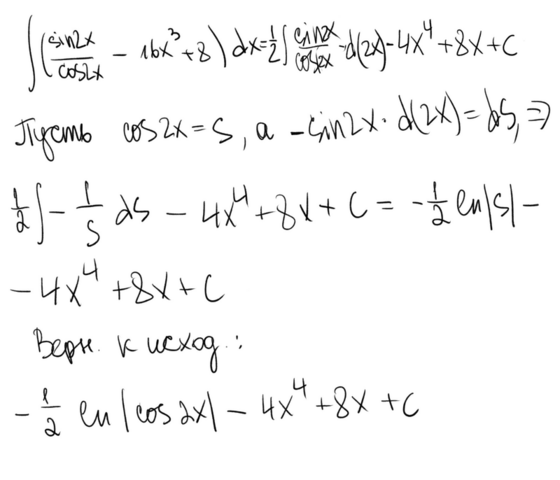 ∫(sin2x/cos2x − 16x³ + 8)dx = 1/2 ∫ sin2x/cos2x · d(2x) − 4x⁴ + 8x + C
Пусть cos2x = S, а −sin2x · d(2x) = dS, ⇒
1/2 ∫ − 1/S dS − 4x⁴ + 8x + C = −1/2 ln|S| −
− 4x⁴ + 8x + C
Верн. к исход.:
−1/2 ln|cos2x| − 4x⁴ + 8x + C